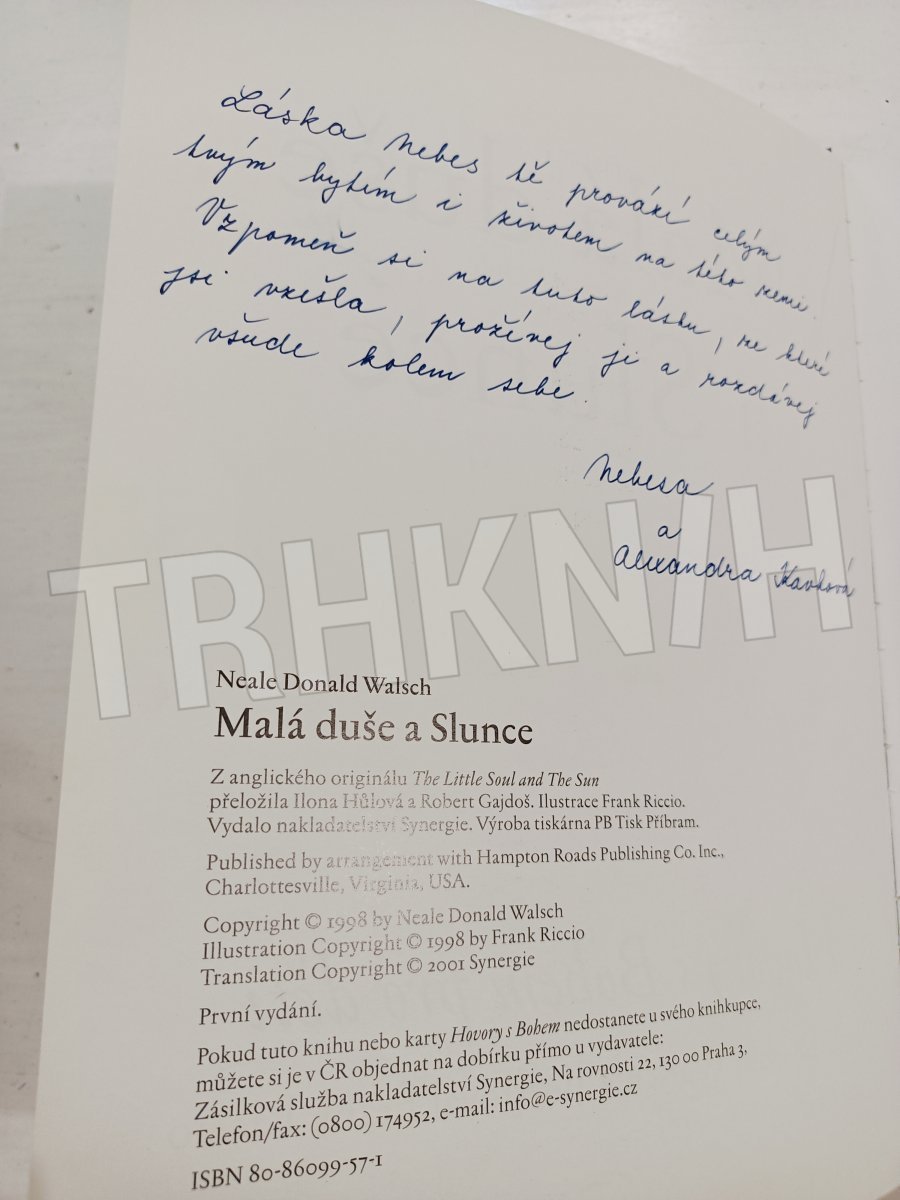 Láska nebes tě provází celým
tvým bytím i životem na této zemi.
Vzpomeň si na tuto lásku, ze které
jsi vzešla, prožívej ji a rozdávej
všude kolem sebe.
Nebesa
a
Alexandra
TRHKNIH
Neale Donald Walsch
Malá duše a Slunce
Z anglického originálu The Little Soul and The Sun
přeložila Ilona Hůlová a Robert Gajdoš. Ilustrace Frank Riccio.
Vydalo nakladatelství Synergie. Výroba tiskárna PB Tisk Příbram.
Published by arrangement with Hampton Roads Publishing Co. Inc.,
Charlottesville, Virginia, USA.
Copyright © 1998 by Neale Donald Walsch
Illustration Copyright © 1998 by Frank Riccio
Translation Copyright © 2001 Synergie
První vydání.
Pokud tuto knihu nebo karty Hovory s Bohem nedostanete u svého knihkupce,
můžete si je v ČR objednat na dobírku přímo u vydavatele:
Zásilková služba nakladatelství Synergie, Na rovnosti 22, 130 00 Praha 3,
Telefon/fax: (0800) 174952, e-mail: info@e-synergie.cz
ISBN 80-86099-57-1